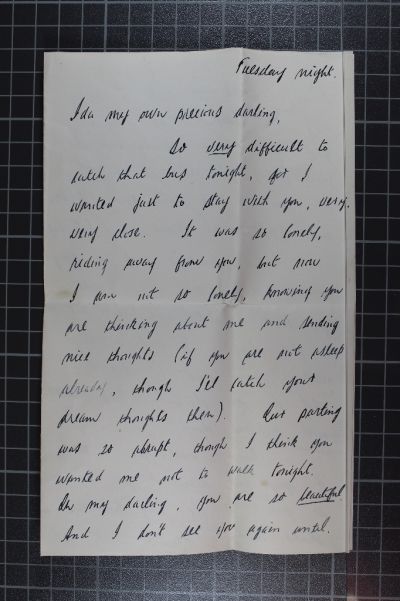 Tuesday night.
Ida my own precious darling,
So very difficult to
catch that bus tonight, for I
wanted just to stay with you, very,
very close. It was so lonely,
riding away from you, but now
I am not so lonely, knowing you
are thinking about me and sending
nice thoughts (if you are not asleep
already, though I'll catch your
dream thoughts then). Our parting
was so abrupt, though I think you
wanted me not to walk tonight.
Oh my darling, you are so beautiful.
And I don't see you again until.